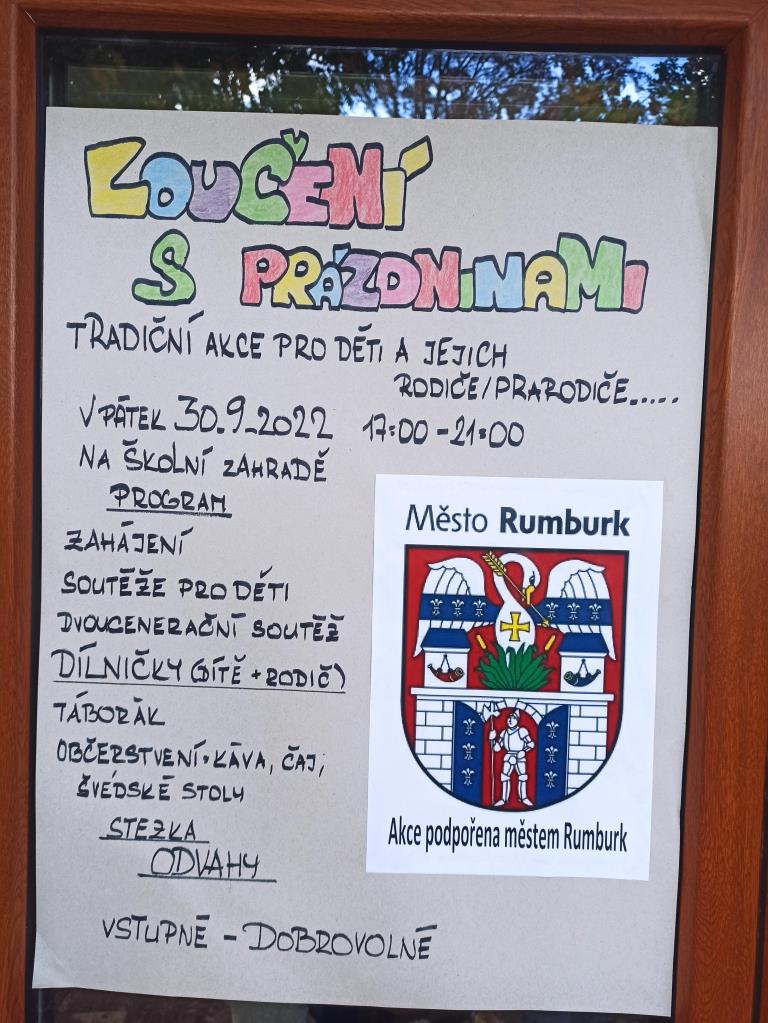 LOUČENÍ
S PRÁZDNINAMI
TRADIČNÍ AKCE PRO DĚTI A JEJICH
RODIČE/PRARODIČE.....
V PÁTEK 30.9.2022 17:00-21:00
NA ŠKOLNÍ ZAHRADĚ
PROGRAM
ZAHÁJENÍ
SOUTĚŽE PRO DĚTI
DVOUGENERAČNÍ SOUTĚŽ
DÍLNIČKY (DÍTĚ + RODIČ)
TÁBORÁK
OBČERSTVENÍ·KÁVA, ČAJ,
ŠVÉDSKÉ STOLY
STEZKA
ODVAHY
VSTUPNÉ - DOBROVOLNÉ
Město Rumburk
Akce podpořena městem Rumburk